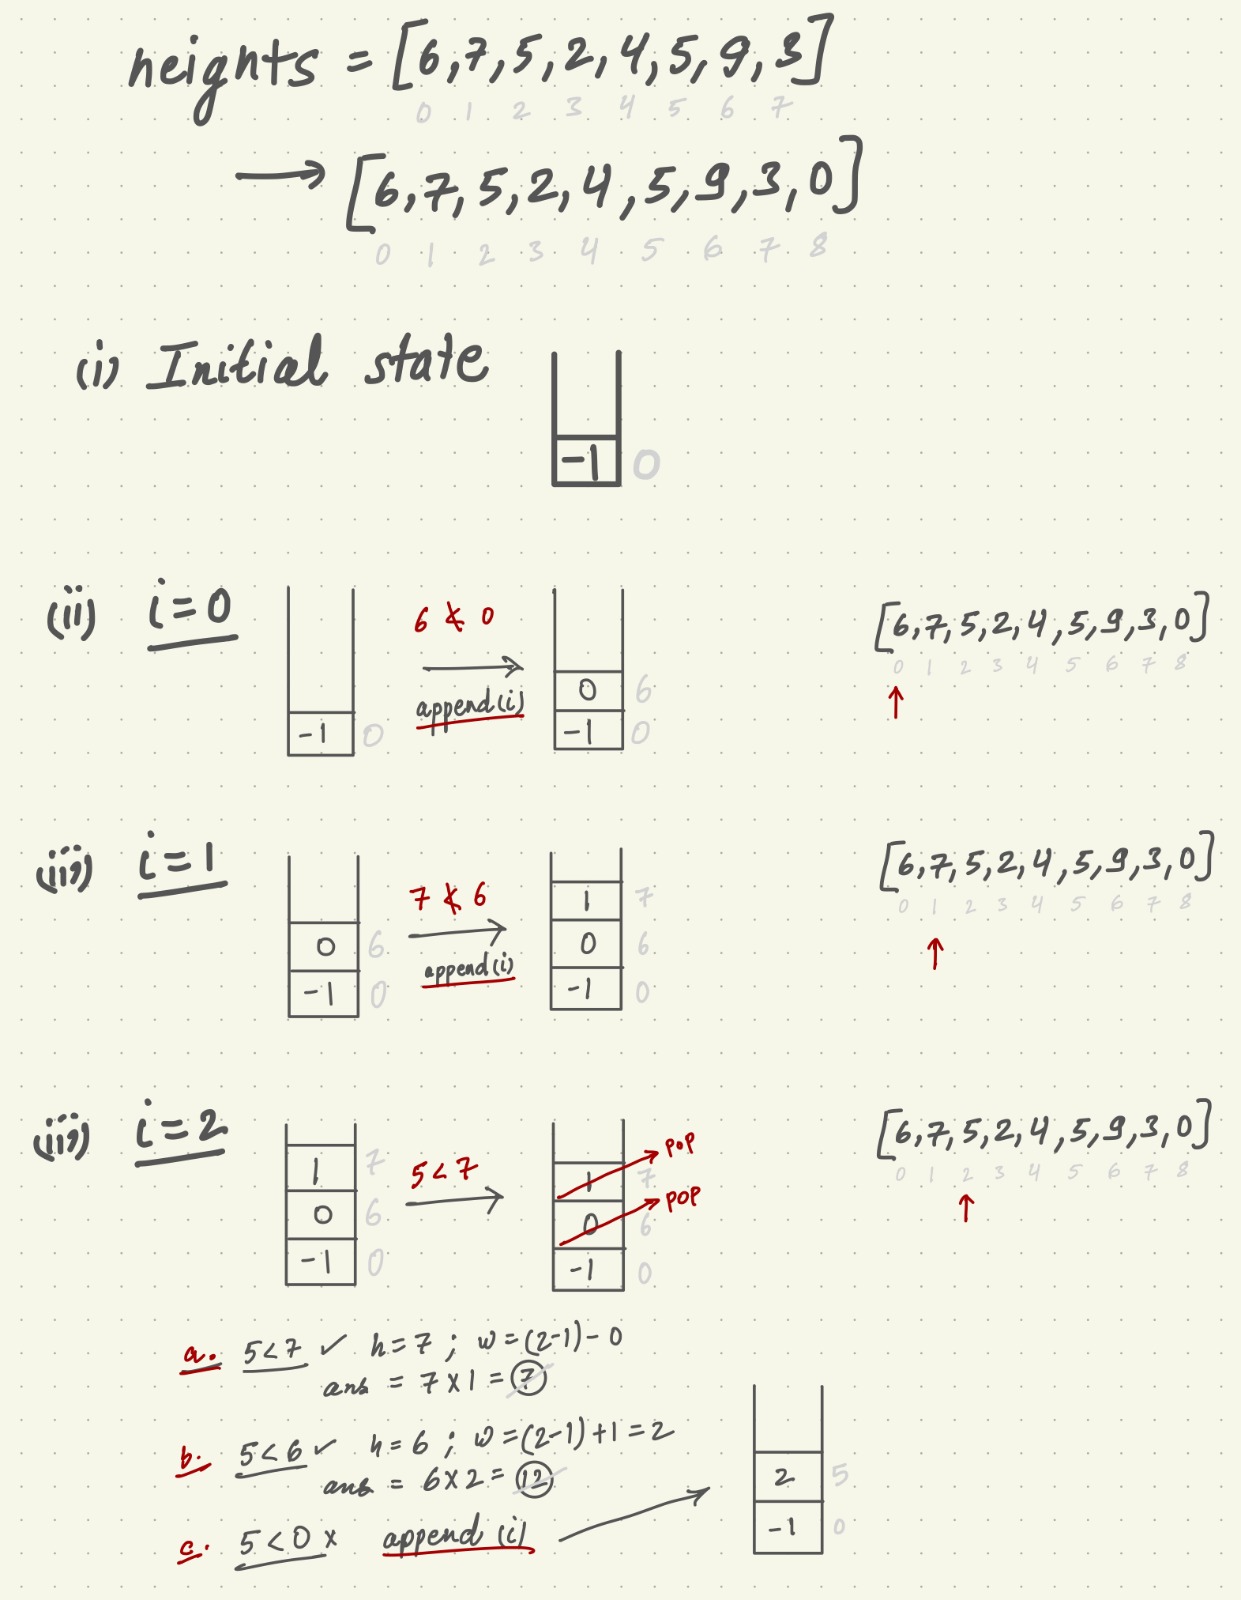 heights = [6,7,5,2,4,5,9,3]
0 1 2 3 4 5 6 7
→ [6,7,5,2,4,5,9,3,0]
0 1 2 3 4 5 6 7 8
(i) Initial state
-1 0
(ii) i=0
6 ≮ 0
append(i)
-1 0
0 6
-1 0
[6,7,5,2,4,5,9,3,0]
0 1 2 3 4 5 6 7 8
(iii) i=1
0 6
-1 0
7 ≮ 6
append(i)
1 7
0 6
-1 0
[6,7,5,2,4,5,9,3,0]
0 1 2 3 4 5 6 7 8
(iii) i=2
1 7
0 6
-1 0
5<7
1 7 POP
0 6 POP
-1 0
[6,7,5,2,4,5,9,3,0]
0 1 2 3 4 5 6 7 8
a. 5<7 ✓ h=7 ; w=(2-1)-0
ans = 7x1 = 7
b. 5<6 ✓ h=6 ; w=(2-1)+1=2
ans = 6x2 = 12
c. 5<0 x append (i)
2 5
-1 0